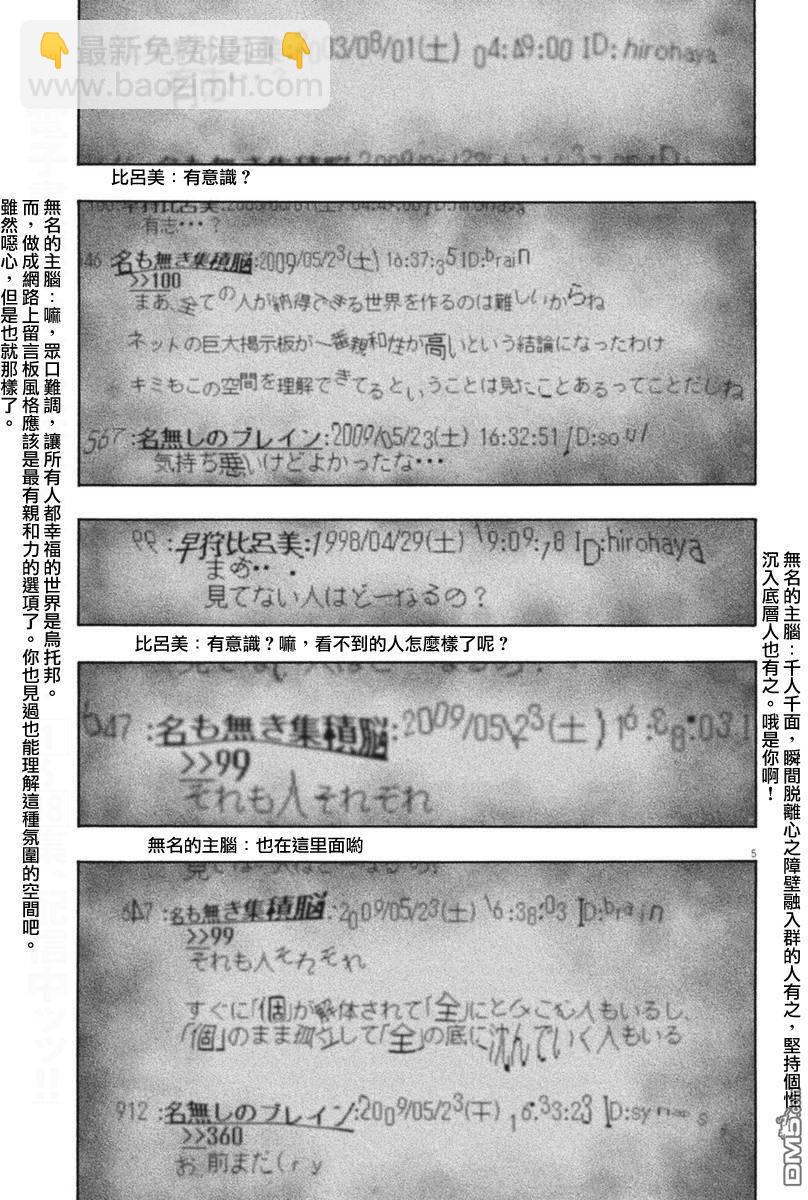 👇最新免费漫画👇
www.baozimh.com
03/08/01(土) 04:49:00 ID:hirohaya
比呂美：有意識？
有志・・・？
46 名も無き集積脳:2009/05/23(土) 16:37:35 ID:brain
>>100
まあ、全ての人が納得できる世界を作るのは難しいからね
ネットの巨大掲示板が一番親和性が高いという結論になったわけ
キミもこの空間を理解できてるということは見たことあるってことだしね
567 :名無しのブレイン:2009/05/23(土) 16:32:51 ID:soul
気持ち悪いけどよかったな・・・
無名的主腦：嘛，眾口難調，讓所有人都幸福的世界是烏托邦。
而，做成網路上留言板風格應該是最有親和力的選項了。你也見過也能理解這種氛圍的空間吧。
雖然噁心，但是也就那樣了。
99 :早狩比呂美:1998/04/29(土) 19:09:78 ID:hirohaya
まあ・・
見てない人はどーなるの？
比呂美：有意識？嘛，看不到的人怎麼樣了呢？
647 :名も無き集積脳:2009/05/23(土) 16:38:03 I
>>99
それも人それぞれ
無名的主腦：千人千面，瞬間脱離心之障壁融入群的人有之，堅持個性
沉入底層人也有之。哦是你啊！
無名的主腦：也在這里面喲
5
647 :名も無き集積脳:2009/05/23(土) 16:38:03 ID:brain
>>99
それも人それぞれ
すぐに「個」が解体されて「全」にとらこむ人もいるし、
「個」のまま孤立して「全」の底に沈んでいく人もいる
912 :名無しのブレイン:2009/05/23(土) 16:33:23 ID:synaps
>>360
お前まだ(ry
DM5